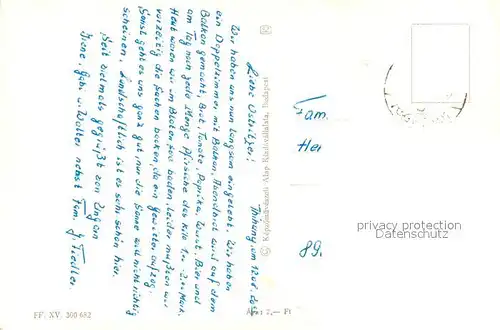 Tihany am 12.08.
Liebe
Wir haben uns nun langsam eingelebt. Wir haben
ein Doppelzimmer, mit Balkon, Abendbrot wird auf dem
Balkon gemacht, Brot, Tomate, Paprika, Wurst, Bier und
am Tag noch jede Menge Pfirsiche das Kilo 1.- 2.- Mark.
Heut waren wir im Blaten See baden, leider mußten wir
vorzeitig die Sachen packen, da ein Gewitter aufzog.
Sonst geht es uns ganz gut nur die Sonne will nicht richtig
scheinen. Landschaftlich ist es sehr schön hier.
Seit vielmals gegrüßt von Ungarn
Irene, Gabi u. Walter nebst Fam. J. Fiedler
Képzőművészeti Alap Kiadóvállalata, Budapest
Fam.
Her
89.
privacy protection
Datenschutz
FF. XV. 300 682
Ára: 2,— Ft